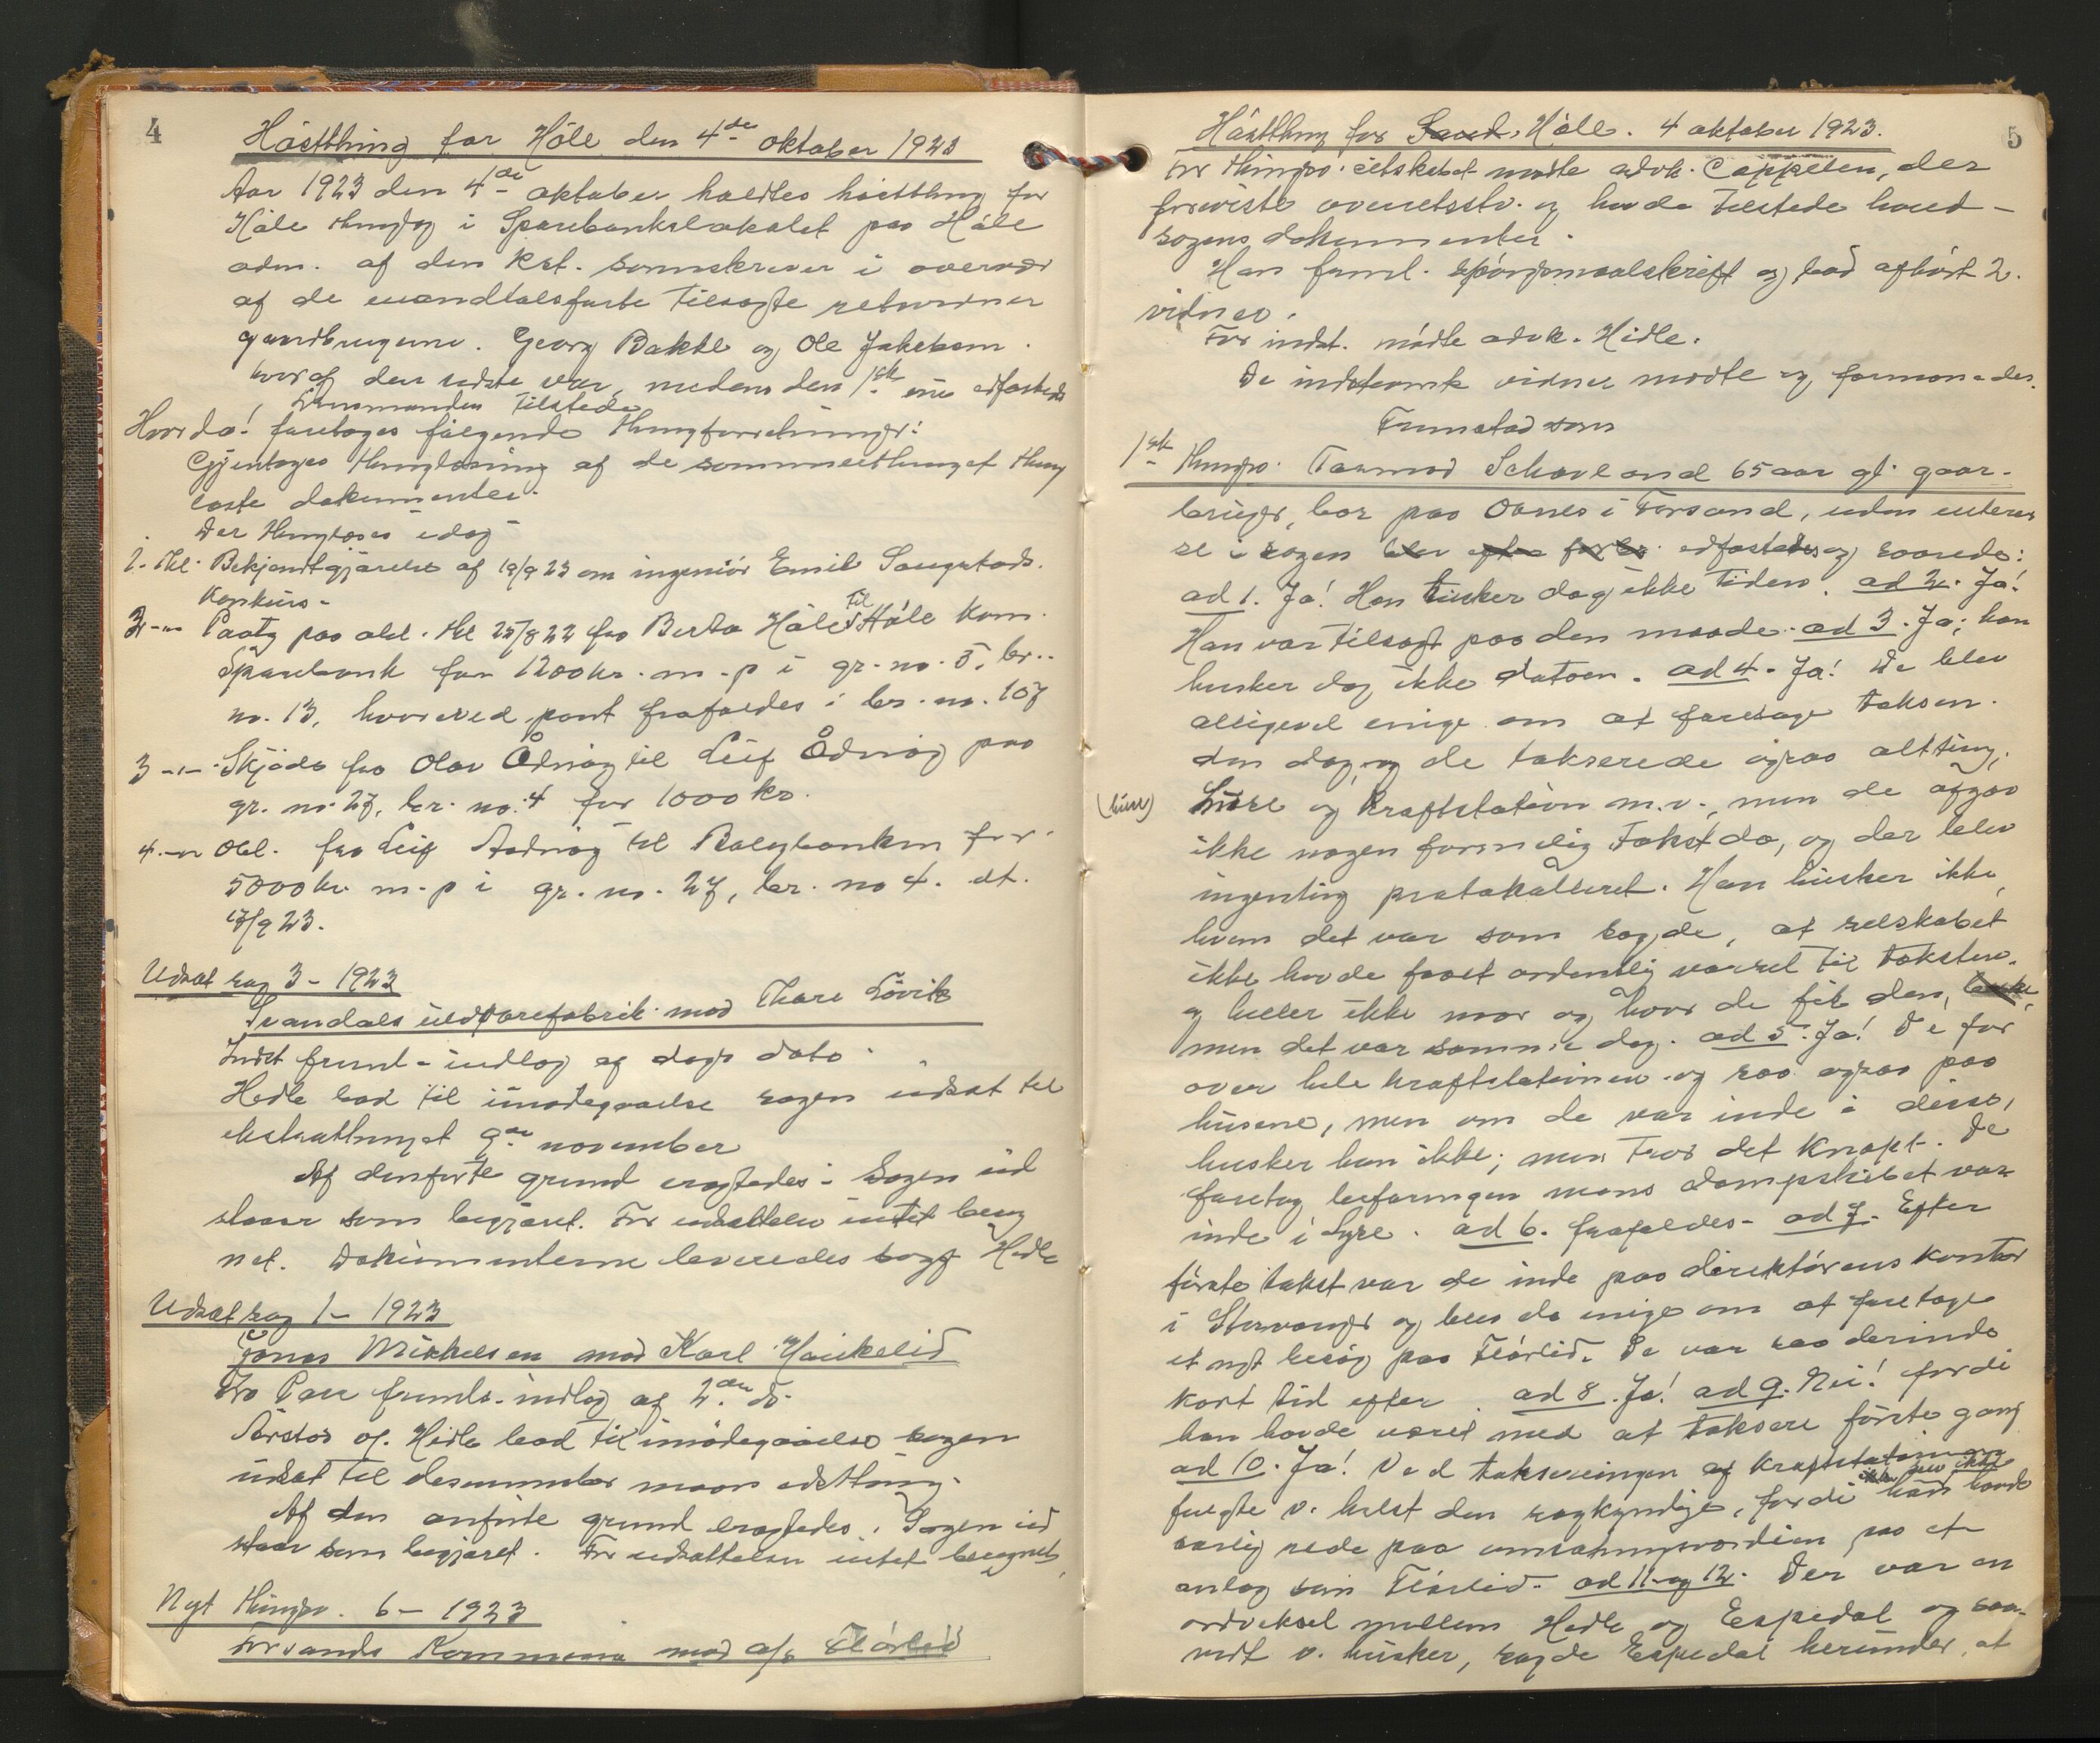 4
Hästthing for Høle den 4de oktober 1923
Aar 1923 den 4de oktober holdtes høstthing for
Høle thinglag i Sparebankslokalet paa Høle
adm. af den kst. sorenskriver i overvær
af de mandtalsførte tilsagte retsvidner
gaardbrugerne. Georg Bakke og Ole Jakobsen.
hvoraf den sidste var, medens den 1ste nu edfæstedes
Lensmanden tilstede
Hvorda! foretoges følgende thingforretninger:
Gjentoges thinglæsning af de sommerthinget thing
læste dokumenter.
Der thinglæses idag
1. Thl. Bekjendtgjørelse af 19/9 23 om ingeniør Emil Saugstads
konkurs -
2 -"- Paategn paa obl. thl 25/8 22 fra Berta Høle til Høle kom.
Sparebank for 1200 kr. m. p i gr. no. 5, br.
no. 13, hvorved pant frafaldes i br. no. 107
3 -"- Skjøde fra Olav Ådnøy til Leif Ådnøy paa
gr. no. 27, br. no. 4 for 1000 kr.
4 -"- Obl. fra Leif Aadnøy til Bølgbanken for
5000 kr. m. p i gr. no. 27, br. no 4. dt.
17/9 23.
Udsat sag 3 - 1923
Svandals uldvarefabrik mod Thore Løvik
Indst freml. indlæg af dags dato.
Hedle bad til imødegaaelse sagen udsat til
ekstrathinget 9de november
Af den førte grund eragtedes: Sagen ud
staar som begjæret. For udsættelse intet bereg
net. Dokumenterne leveredes sagf Hedle
Udsat sag 1 - 1923
Jonas Mikkelsen mod Karl Haukelid
Fra Parr fremla. indlæg af 2den ds.
Sørstos of. Hidle bad til imødegaaelse sagen
udsat til desemember maans edsthing.
Af den anførte grund eragtedes: Sagen ud
staar som begjæret. For udsættelsen intet beregnet,
Nyt thingv. 6 - 1923
Forsands Kommune mod a/s Flørlid
5
Høstthing for Sand. Høle. 4 oktober 1923.
For thingsv. selskabet mødte advk. Cappelen, der
foreviste overretsstv. og havde tilstede hoved-
sagens dokumenter.
Han freml. spørgsmaalskrift og bad afhørt 2.
vidner.
For indst. mødte advk. Hidle.
De indstevnte vidner mødte og formanedes.
Fremstod som
1ste thingsv. Tarmod Schaveland 65 aar gl. gaar-
bruger, bor paa Oanes i Forsand, uden interes
se i sagen blev efter forl. edfæstedes og svarede:
ad 1. Ja! Han husker dog ikke tiden. ad 2. Ja!
Han var tilsagt paa den maade. ad 3. Ja; han
husker dog ikke datoen. ad 4. Ja! De blev
alligevel enige om at foretage taksen
den dag, og de takserede ogsaa altting,
(huse) huse og kraftstation m.v., men de afgav
ikke nogen formelig takst da, og der blev
ingenting protokolleret. Han husker ikke
hvem det var som sagde, at selskabet
ikke havde faaet ordentlig varsel til taksten.
og heller ikke naar og hvor de fik den,
men det var samme dag. ad 5. Ja! De for
over hele kraftstationen og saa ogsaa paa
husene, men om de var inde i disse,
husker han ikke; men tror det knapt. De
foretog befaringen mens dampskibet var
inde i Lyse. ad 6. frafaldes - ad 7. Efter
første takst var de inde paa direktørens kontor
i Stavanger og blev da enige om at foretage
et nyt besøg paa Flørlid. De var saa derinde
kort tid efter. ad 8. Ja! ad 9. Nei! fordi
han havde været med at taksere første gang
ad 10. Ja! Ved takseringen af kraftstationen
fulgte v. helst den sagkyndige, fordi han ikke havde
særlig rede paa omsætningsværdien paa et
anlæg som Flørlid. ad 11 og 12. Der var en
ordveksel mellem Hedle og Espedal og saa-
vidt v. husker, sagde Espedal herunder, at